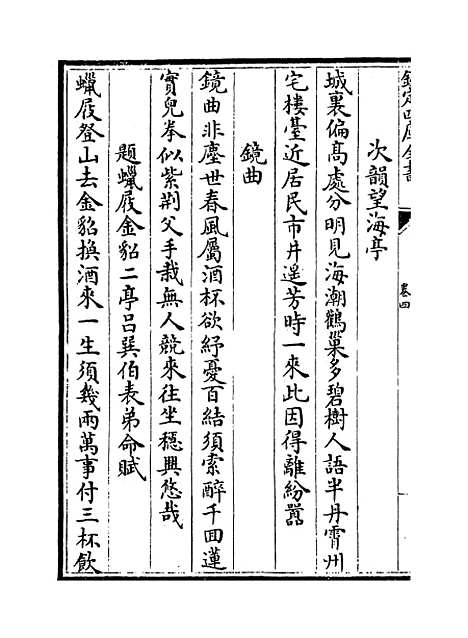 欽定四庫全書
卷四
次韻望海亭
城裏偏高處分明見海潮鸛巢多碧樹人語半丹霄州
宅樓臺近居民市井遥芳時一來此因得離紛囂
鏡曲
鏡曲非塵世春風屬酒杯欲紓憂百結須索醉千回蓮
實兒拳似紫荆父手栽無人競來往坐穩興悠哉
題蠟屐金貂二亭吕巽伯表弟命賦
蠟屐登山去金貂換酒來一生須幾兩萬事付三杯飲